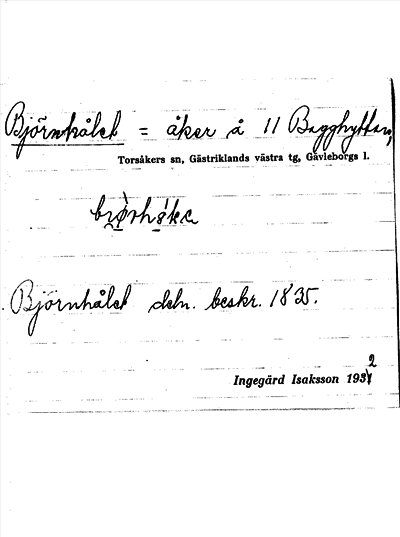 Björnhålet = åker å 11 Bagghyttan,
Torsåkers sn, Gästriklands västra tg, Gävleborgs l.
Björnhålet deln. beskr. 1835.
Ingegärd Isaksson 1932